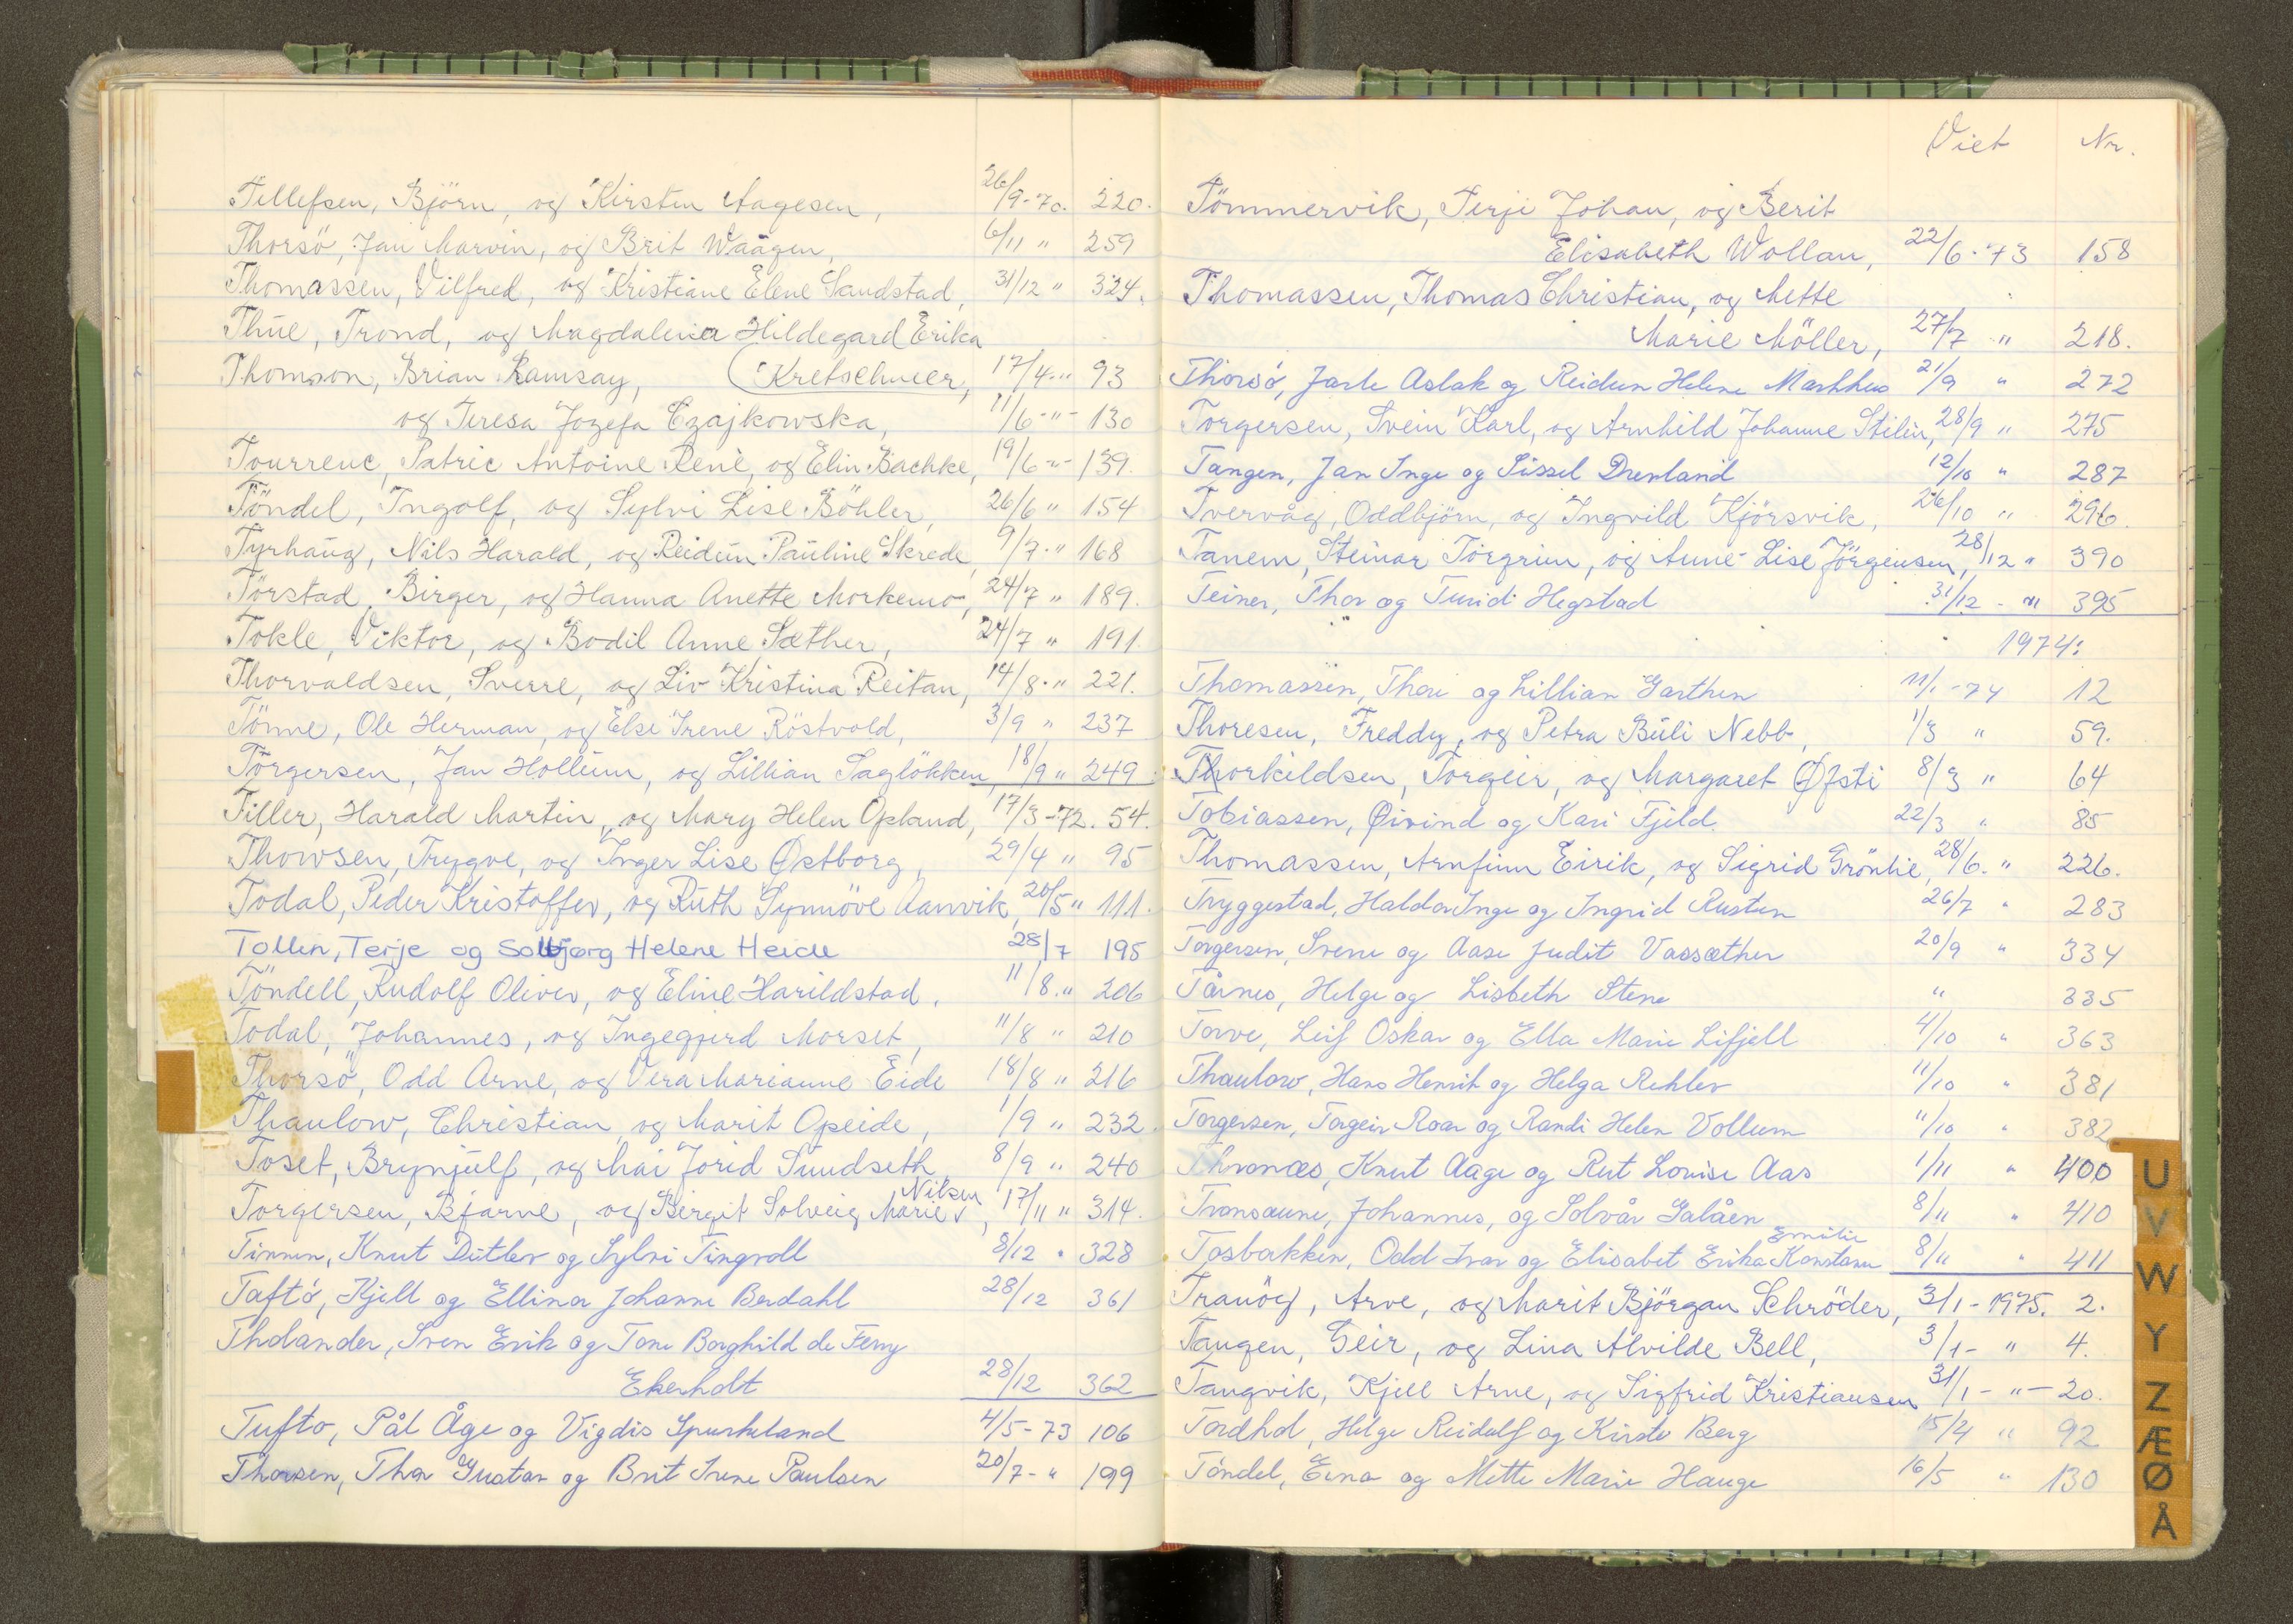 Tellefsen, Björn, og Kirsten Aagesen, 26/9-70. 220.
Thorsö, Jan Marvin, og Brit Waagen, 6/11 " 259
Thomassen, Vilfred, og Kristiane Elene Sandstad, 31/12 " 324.
Thue, Trond, og Magdalena Hildegard Erika
Thomson, Brian Ramsay, (Kretschmer, 17/4 -"- 93
og Teresa Jozefa Czajkowska, 11/6 -"- 130
Tourrenc, Patric Antoine Renè, og Elin Bachke, 19/6 -"- 139.
Töndel, Ingolf, og Sylvi Lise Böhler, 26/6 " 154
Tyrhaug, Nils Harald, og Reidun Pauline Skrede, 9/7 -" 168
Törstad, Birger, og Hanna Anette Morkemo, 24/7 " 189.
Tokle, Viktor, og Bodil Anne Sæther, 24/7 " 191.
Thorvaldsen, Sverre, og Liv Kristina Reitan, 14/8 -" 221.
Tönne, Ole Herman, og Else Irene Röstvold, 3/9 " 237
Torgersen, Jan Hollum, og Lillian Saglökken, 18/9 " 249.
Tiller, Harald Martin, og Mary Helen Opland, 17/3-72. 54.
Thowsen, Trygve, og Inger Lise Østborg, 29/4 " 95
Todal, Peder Kristoffer, og Ruth Synnöve Aanvik, 20/5 " 111.
Tollen, Terje og Solbjørg Helene Heide 28/7 195
Töndell, Rudolf Oliver, og Eline Harildstad, 11/8. " 206
Todal, Johannes, og Ingegjerd Morset, 11/8 " 210
Thorsö, Odd Arne, og Vera Marianne Eide 18/8 " 216
Thaulow, Christian og Marit Opeide, 1/9 " 232.
Toset, Brynjulf, og Mai Jorid Sundseth 8/9 " 240
Nilsen
Torgersen, Bjarne, og Birgit Solveig Marie, 17/11 " 314.
Tinnen, Knut Ditlev og Sylvi Tingvoll 8/12 " 328
Taftó, Kjell og Ellinor Johanne Berdahl 28/12 361
Tholander, Sven Erik og Tone Borghild de Ferry
Ekerholt 28/12 362
Tufto, Pål Åge og Vigdis Spurkeland 4/5-73 106
Thorsen, Thor Gustav og Brit Irene Paulsen 20/7 - " 199
Viet Nr.
Tömmervik, Terje Johan, og Berit
Elisabeth Wollan, 22/6-73 158
Thomassen, Thomas Christian, og Mette
Marie Möller, 27/7 " 218.
Thorsó, Jarle Aslak og Reidun Helene Markhus 21/9 " 272
Torgersen, Svein Karl, og Arnhild Johanne Stilén, 28/9 " 275
Tangen, Jan Inge og Sissel Drenland 12/10 " 287
Tvervåg, Oddbjörn, og Ingvild Kjörsvik, 26/10 " 296.
Tanem, Steinar Torgrim, og Anne-Lise Jörgensen, 28/12 " 390
Teiner, Thor og Turid Hegstad 31/12 - " 395
1974:
Thomassen, Thore og Lillian Garthen 11/1-74 12
Thoresen, Freddy, og Petra Buli Nebb, 1/3 " 59.
Thorkildsen, Torgeir, og Margaret Øfsti 8/3 " 64
Tobiassen, Øivind og Kari Fjeld 22/3 " 85
Thomassen, Arnfinn Eirik, og Sigrid Grönlie, 28/6. " 226.
Tryggestad, Haldor Inge og Ingrid Rusten 26/7 " 283
Torgersen, Svein og Aase Judit Vassæther 20/9 " 334
Tårnes, Helge og Lisbeth Stene " 335
Torve, Leif Oskar og Ella Marie Lifjell 4/10 " 363
Thaulow, Hans Henrik og Helga Rehler 11/10 " 381
Torgersen, Torgeir Roar og Randi Helen Vollum 11/10 " 382
Thronæs, Knut Aage og Rut Louise Aas 1/11 " 400
Tronsaune, Johannes, og Solvår Galåen 8/11 " 410
Emilie
Tosbakken, Odd Ivar og Elisabet Erika Konstanse 8/11 " 411
Tranöy, Arve, og Marit Björgan Schröder, 3/1-1975. 2.
Tangen, Geir, og Lina Alvilde Bell, 3/1- " 4.
Tangvik, Kjell Arne, og Sigfrid Kristiansen 31/1 - " - 20.
Tordhol, Helge Reidulf og Kirsti Berg 15/4 " 92
Töndel, Einar og Mette Marie Hauge 16/5 " 130
U
V
W
Y
Z
Æ
Ø
Å